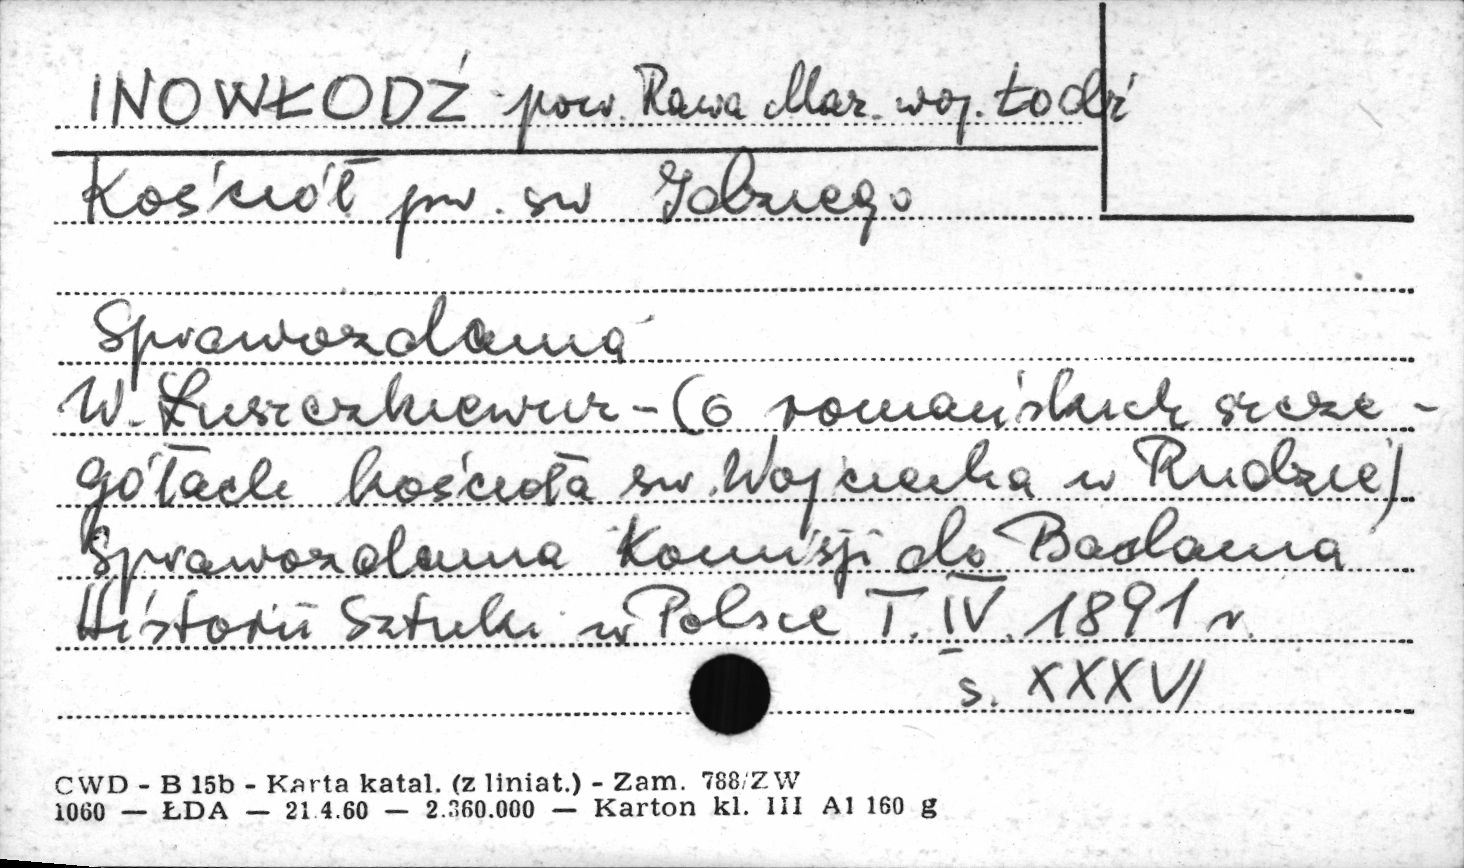 INOWŁÓDŹ pow. Rawa Maz. woj. Łódź
Kościół pw. św Idziego
Sprawozdania
W. Łuszczkiewicz - (o romańskich szcze-
gółach kościoła św. Wojciecha w Rudzie)
Sprawozdania Komisji do Badania
Historii Sztuki w Polsce T. IV. 1891 r.
s. XXXVI
CWD - B 15b - Karta katal. (z liniat.) - Zam. 788/ZW
1060 — ŁDA — 21.4.60 — 2.360.000 — Karton kl. III A1 160 g